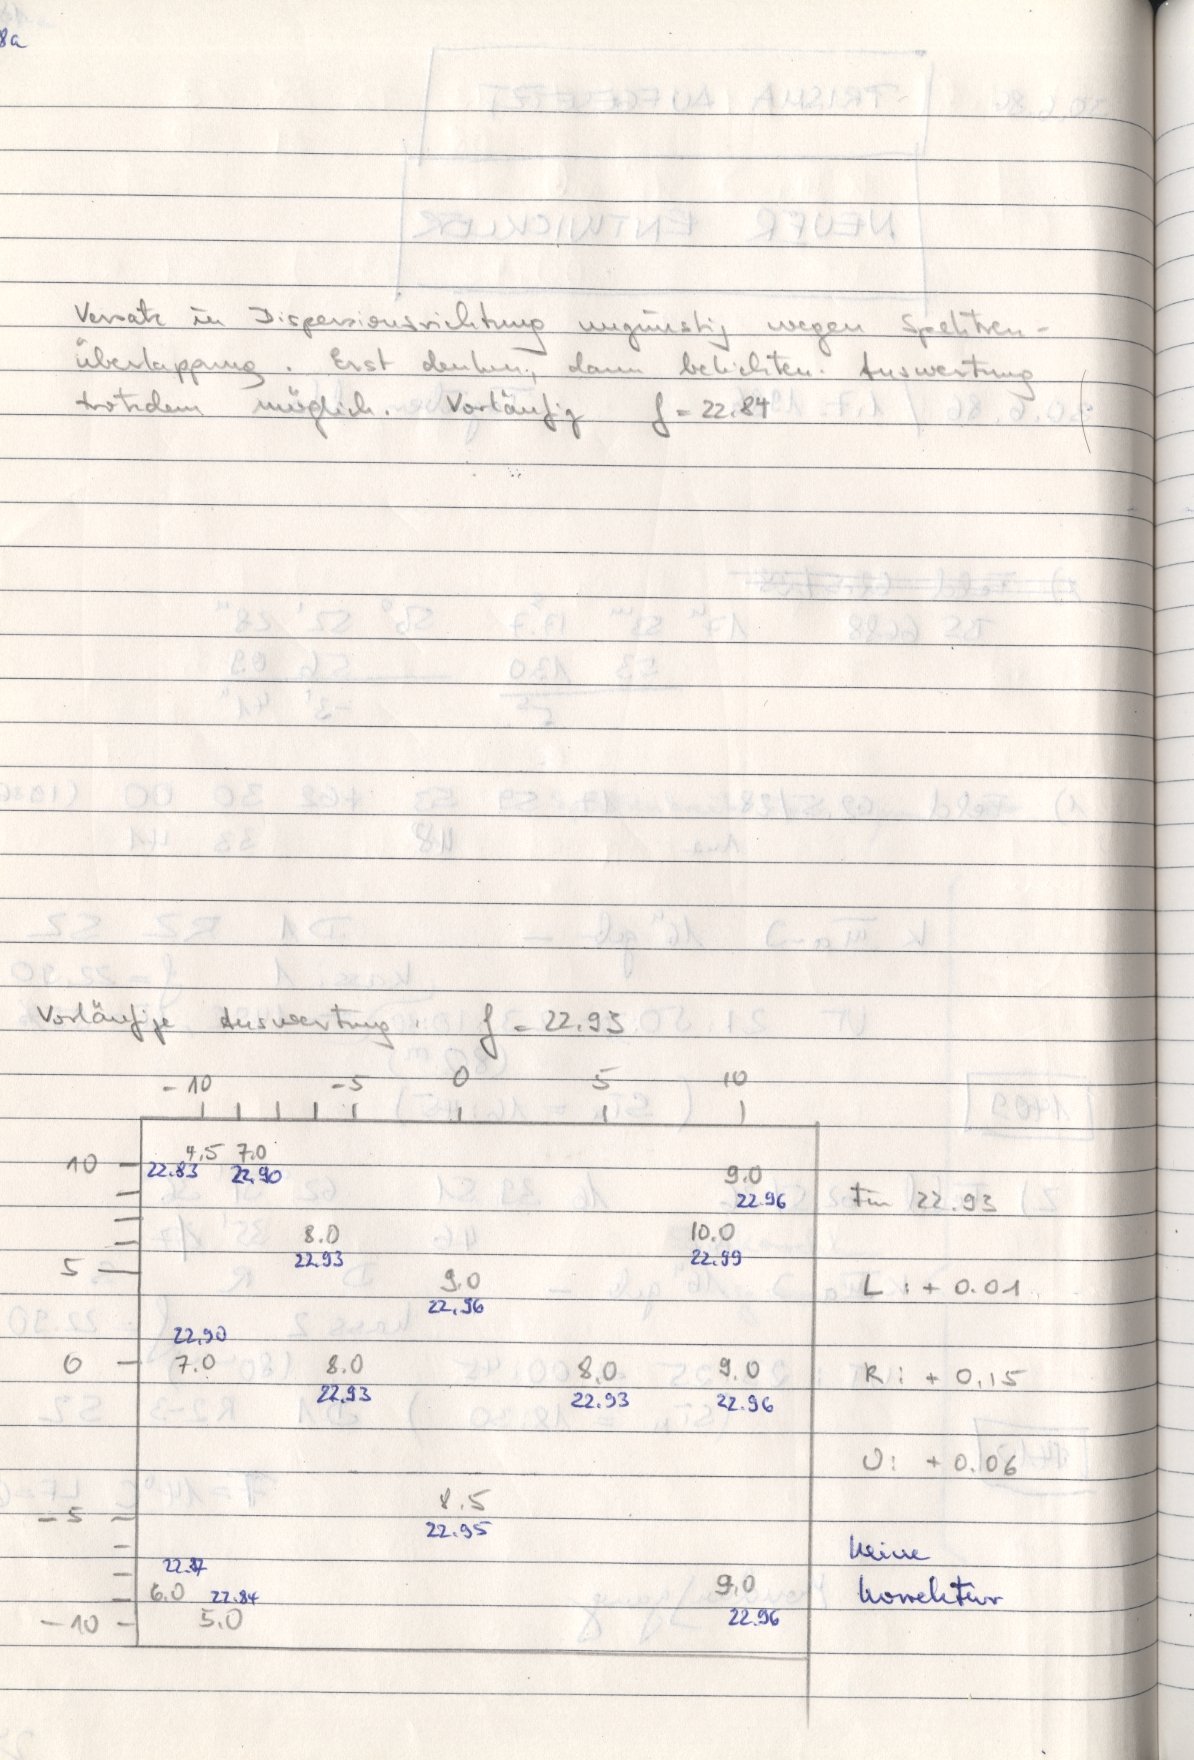 8a
Versatz in Dispersionsrichtung ungünstig wegen Spektren-
überlappung. Erst denken, dann belichten. Auswertung
trotzdem möglich. Vorläufig f = 22.84
Vorläufige Auswertung: f = 22.93
-10 -5 0 5 10
4.5 7.0
10 22.83 22.90 9.0
22.96 Fm 22.93
8.0 10.0
5 22.93 22.99
9.0 L: + 0.01
22.96
22.90
0 7.0 8.0 8.0 9.0 R: + 0.15
22.93 22.93 22.96
U: + 0.06
8.5
-5 22.95
22.87 keine
6.0 22.84 9.0 Korrektur
-10 5.0 22.96